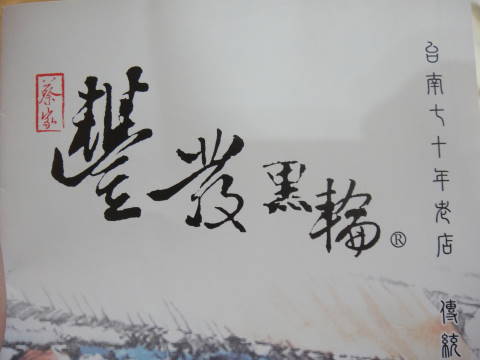 台南七十年老店 傳統
蔡家
豐發黑輪®